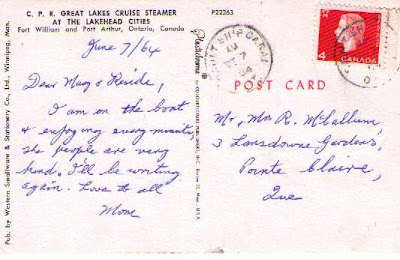 C. P. R. GREAT LAKES CRUISE STEAMER
AT THE LAKEHEAD CITIES
Fort William and Port Arthur, Ontario, Canada
P22263
June 7/64
Dear Mary &
I am on the boat
& enjoying every minute,
the people are very
kind. I'll be writing
again. Love to all
Mom
Pub. by Western Smallware & Stationery Co., Ltd., Winnipeg, Man.
SHIP CANAL
AM
7
4
CANADA
POST CARD
Mr & Mrs R. McCallum,
3 Lansdowne Gardens,
Pointe Claire,
Que